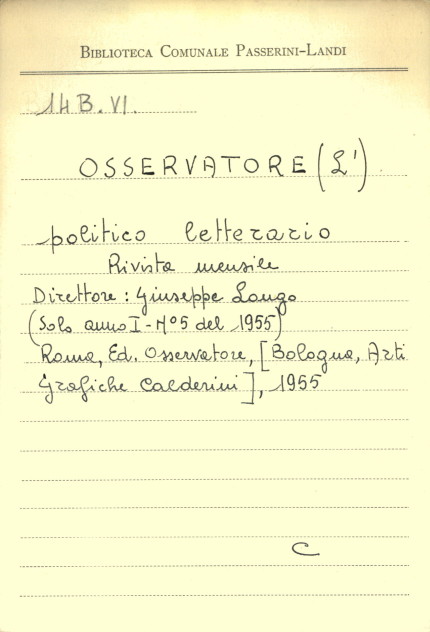 BIBLIOTECA COMUNALE PASSERINI-LANDI
14 B. VI.
OSSERVATORE (L')
politico letterario
Rivista mensile
Direttore: Giuseppe Longo
(Solo anno I - Nº 5 del 1955)
Roma, Ed. Osservatore, [Bologna, Arti
Grafiche Calderini], 1955
C